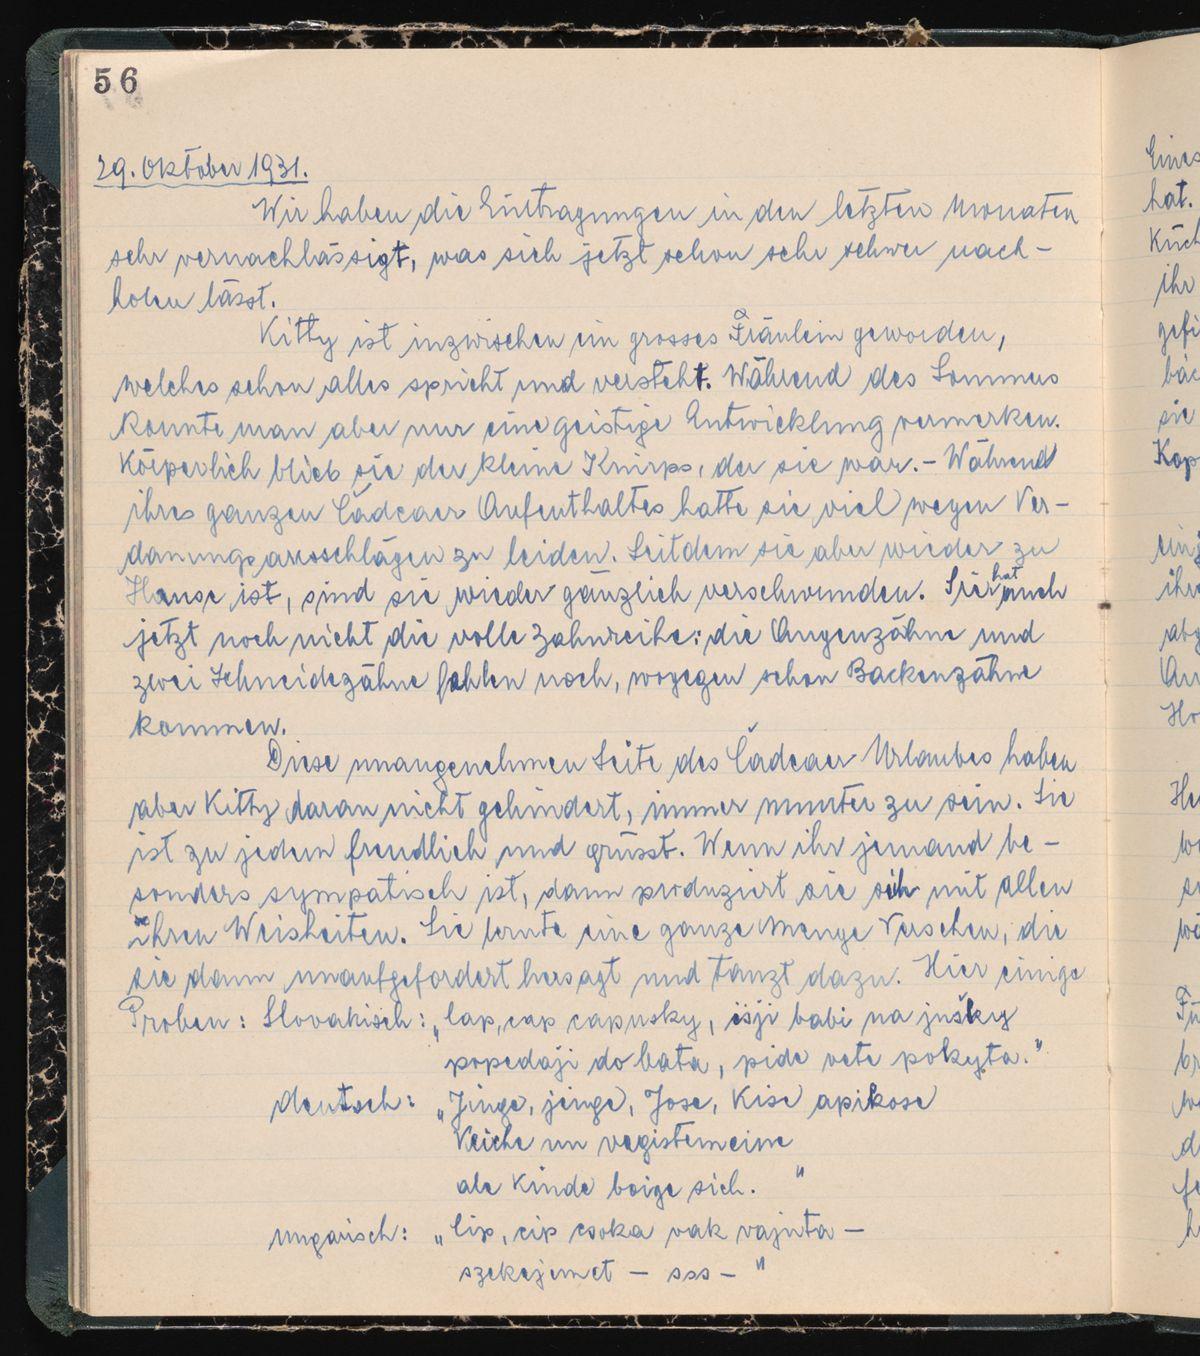 56
29. Oktober 1931.
Wir haben die Eintragungen in den letzten Monaten
sehr vernachlässigt, was sich jetzt schon sehr schwer nach-
holen lässt.
Kitty ist inzwischen ein grosses Fräulein geworden,
welches schon alles spricht und versteht. Während des Sommers
konnte man aber nur eine geistige Entwicklung vermerken.
Körperlich blieb sie der kleine Knirps, der sie war. - Während
ihres ganzen Čadcaer Aufenthaltes hatte sie viel wegen Ver-
dauungsausschlägen zu leiden. Seitdem sie aber wieder zu
Hause ist, sind sie wieder gänzlich verschwunden. Sie hat auch
jetzt noch nicht die volle Zahnreihe: die Augenzähne und
zwei Schneidezähne fehlen noch, wogegen schon Backenzähne
kommen.
Diese unangenehmen Seite des Čadcaer Urlaubes haben
aber Kitty daran nicht gehindert, immer munter zu sein. Sie
ist zu jedem freudlich und grüsst. Wenn ihr jemand be-
sonders sympatisch ist, dann produziert sie sich mit allen
ihren Weisheiten. Sie lernte eine ganze Menge Verschen, die
sie dann unaufgefordert hersagt und tanzt dazu. Hier einige
Proben: Slovakisch: „lap, cap capusky, išji babi na jušky
popedaji do bata, pide vete pokyta."
deutsch: „Jinge, jinge, Jose, Kise apikose
Veiche un vegistemeine
ale Kinde boige sich."
ungarisch: „lip, cip csoka vak vajuta -
szekejemet - sss -"
Eines
hat.
Küch
ihr
gefi
bäc
sie
Kap
ein
ihr
abg
Hu